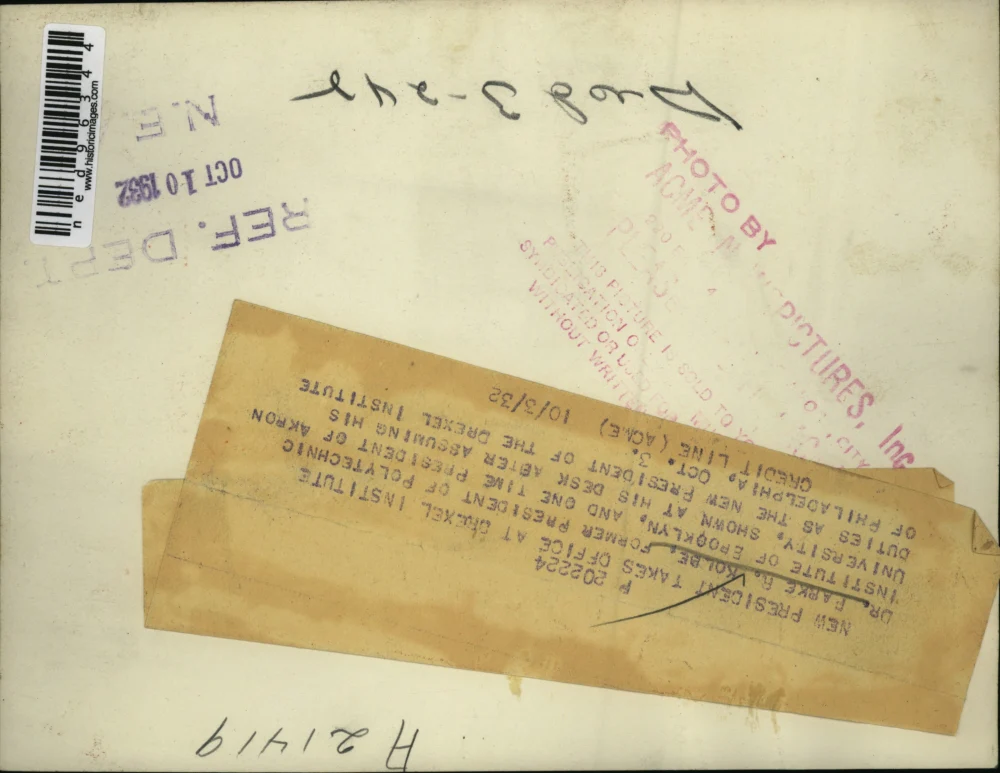 P 202224
NEW PRESIDENT TAKES OFFICE AT DREXEL INSTITUTE
DR. PARKE R. KOLBE, FORMER PRESIDENT OF POLYTECHNIC
INSTITUTE OF BROOKLYN, AND ONE TIME PRESIDENT OF AKRON
UNIVERSITY, SHOWN AT HIS DESK AFTER ASSUMING HIS
DUTIES AS THE NEW PRESIDENT OF THE DREXEL INSTITUTE
OF PHILADELPHIA, OCT. 3.
CREDIT LINE (ACME) 10/3/32
PHOTO BY
ACME
PICTURES, Inc
CITY
THIS PICTURE IS SOLD TO
SYNDICATED OR
WITHOUT
REF. DEPT.
OCT 10 1932
N.E.
3-24
A21419
ned96344
www.historicimages.com